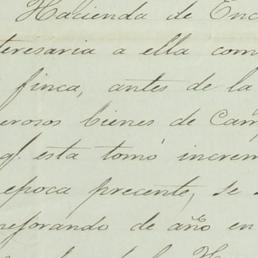 Hacienda de Enc
teresaria a ella com
finca, antes de la
erosos bienes de Cam
qᵉ esta tomó increm
epoca precente, se
mejorando de año en